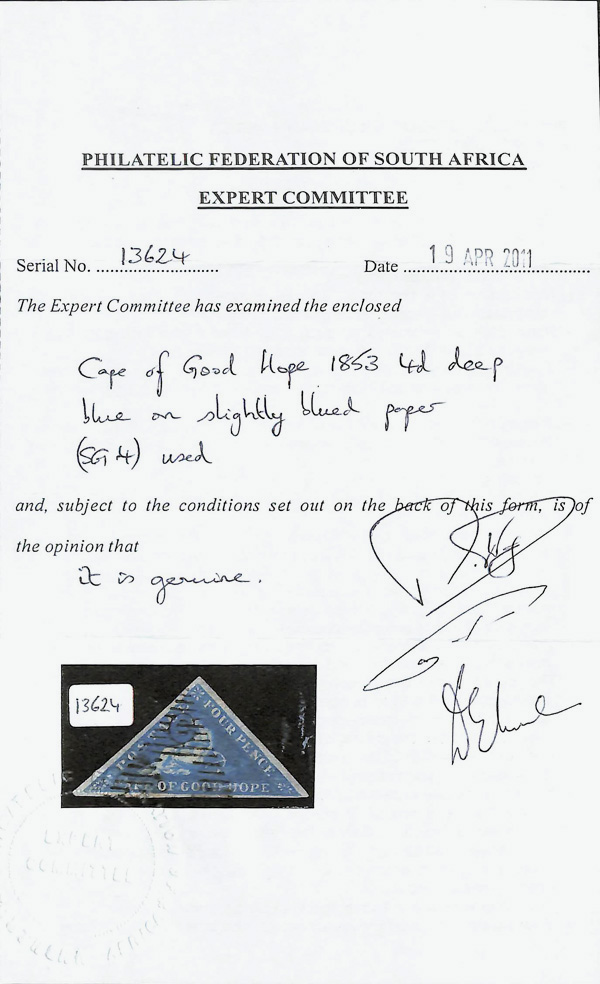 PHILATELIC FEDERATION OF SOUTH AFRICA
EXPERT COMMITTEE
Serial No. 13624 Date 19 APR 2011
The Expert Committee has examined the enclosed
Cape of Good Hope 1853 4d deep
blue on slightly blued paper
(SG 4) used
and, subject to the conditions set out on the back of this form, is of
the opinion that
it is genuine.
13624
FOUR PENCE
OF GOOD HOPE
EXPERT
COMMITTEE